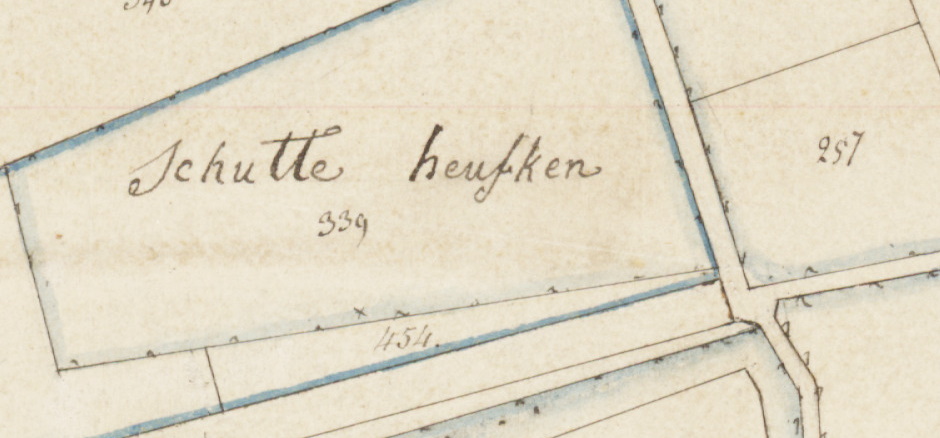 Schutte heufken
257
339
454.